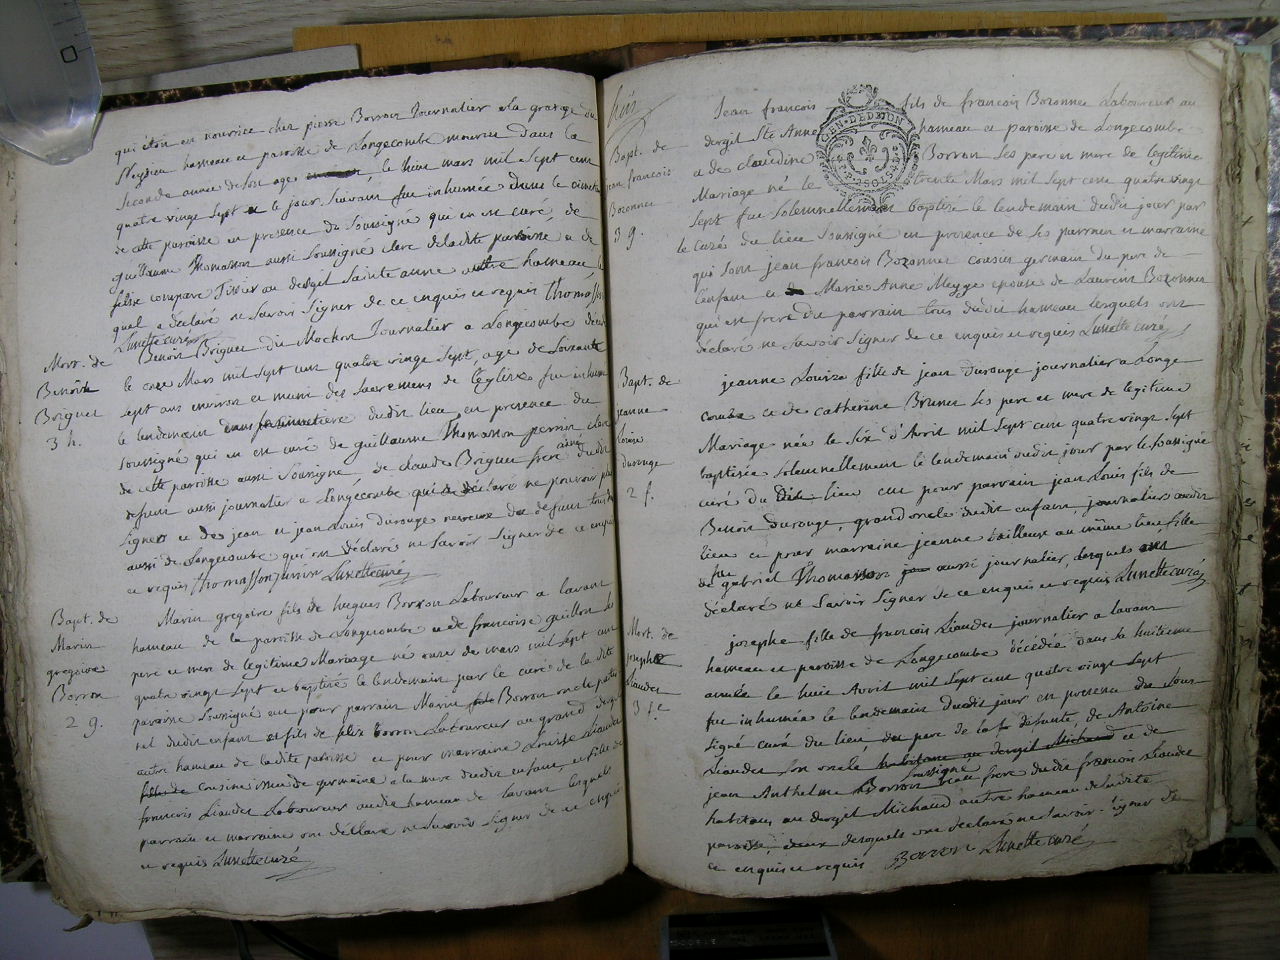 qui étoit en nourrice chez pierre Borron Journalier a la grange du
hameau et paroisse de Longecombe mourut dans la
seconde année de son age le huit mars mil sept cent
quatre vingt sept et le jour suivant fut inhumée dans le cimetiere
de cette paroisse en presence du Soussigné qui en est curé, de
guillaume Thomasson aussi Soussigné clerc de ladite paroisse et de
felise compare Tissier au dergit Sainte anne autre hameau, le
quel a déclaré ne Savoir Signer de ce enquis et requis Thomasson
Lunette curé
Mort. de
Benoît
Briguet
3 h.
Benoit Briguet du Mochon Journalier a Longecombe décédé
le onze Mars mil sept cent quatre vingt sept, age de Soixante
sept ans environ et muni des Sacremens de l'eglise fut inhumé
le lendemain dans le cimetiere dudit lieu en presence du
soussigné qui en est curé de guillaume Thomasson perrin clerc
de cette paroisse aussi Soussigné de claude Briguet frere ainé dudit
defunt aussi journalier a Longecombe qui a déclaré ne pouvoir plus
signer et des jean et jean Louis durouge neveux du defunt tous deux
aussi de Longecombe qui ont déclaré ne Savoir Signer de ce enquis
et requis Thomasson perrin Lunette curé
Bapt. de
Marin
gregoire
Borron
2 g.
Marin gregoire fils de hugues Borron Laboureur a lavant
hameau de la paroisse de Longecombe et de francoise guillon ses
pere et mere de legitime Mariage né onze de mars mil sept cent
quatre vingt sept et baptisé le lendemain par le curé de la dite
paroisse Soussigné eut pour parrain Marin fils Borron oncle pater
nel dudit enfant et fils de felix borron Laboureur au grand dergit
autre hameau de ladite paroisse et pour marraine Louise Liaudet
fille de cousine issue de germaine a la mere dudit enfant, et fille de
francois Liaudet Laboureur audit hameau de lavant lesquels
parrain et marraine ont déclaré ne Savoir Signer de ce enquis
et requis Lunette curé
huit
GEN. DE DIJON
Bapt. de
jean francois
Bozonnet
3 g.
Jean francois fils de francois Bozonnet Laboureur au
dergit Ste Anne hameau et paroisse de Longecombe
et de claudine Borron ses pere et mere de legitime
Mariage né le trente Mars mil sept cent quatre vingt
sept fut Solemnellement baptisé le lendemain dudit jour par
le curé du lieu Soussigné en presence de ses parrain et marraine
qui sont jean francois Bozonnet cousin germain du pere de
l'enfant et de Marie Anne Meygge epouse de Laurent Bozonnet
qui est frere du parrain tous dudit hameau lesquels ont
déclaré ne Savoir Signer de ce enquis et requis Lunette curé
Bapt. de
jeanne
Louise
durouge
2 f.
jeanne Louise fille de jean durouge journalier a Longe
combe et de catherine Brunet ses pere et mere de legitime
Mariage née le Six d'Avril mil Sept cent quatre vingt Sept
baptisée solemnellement le lendemain dudit jour par le soussigné
curé du Dit lieu eut pour parrain jean Louis fils de
Benoit durouge, grand oncle dudit enfant journalier audit
lieu et pour marraine jeanne tailleuse au même lieu fille
feu
de gabriel Thomasson aussi journalier, lesquels ont
déclaré ne Savoir Signer de ce enquis et requis Lunette curé
Mort. de
josephe
Liaudet
3 f.e
josephe fille de francois Liaudet journalier a lavant
hameau et paroisse de Longecombe décédée dans sa huitieme
année le huit Avril mil Sept cent quatre vingt Sept
fut inhumée le lendemain dudit jour en presence du Sous
signé curé du lieu du pere de la defunte, de Antoine
Liaudet son oncle habitans au dergit Michaud et de
Soussigné
jean Anthelme Borron beau frere dudit francois Liaudet
habitans au dergit Michaud autre hameau de ladite
paroisse, deux desquels ont déclaré ne Savoir Signer de
ce enquis et requis Borron Lunette curé